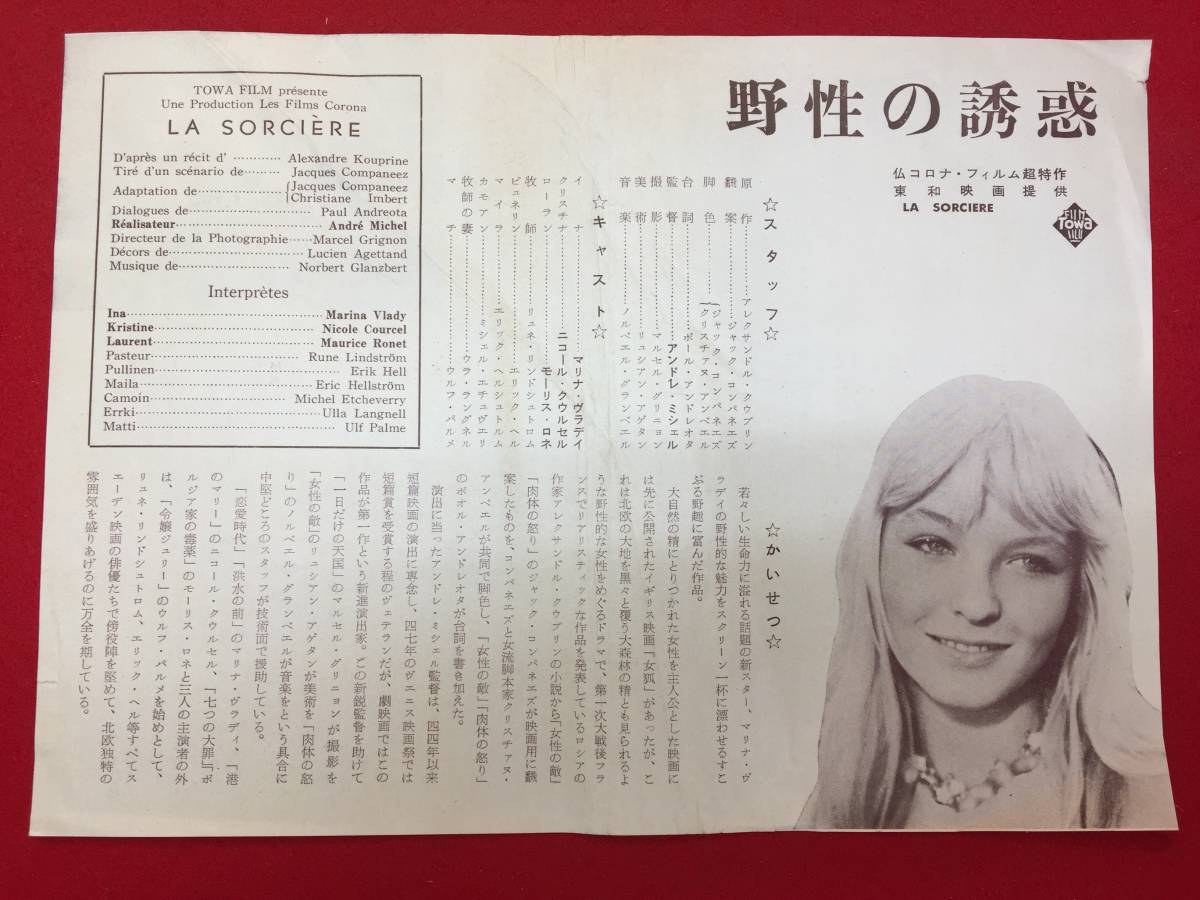 野性の誘惑
仏コロナ・フィルム超特作
東和映画提供
LA SORCIERE
FILM
Towa
FILM
☆スタッフ☆
原作……アレクサンドル・クウプリン
飜案……ジャック・コンパネエズ
脚色……{ジャック・コンパネエズ
クリスチァヌ・アンベエル
台詞……ポール・アンドレオタ
監督……アンドレ・ミシェル
撮影……マルセル・グリニョン
美術……リュシアン・アゲタン
音楽……ノルベエル・グランベエル
☆キャスト☆
イナ……マリナ・ヴラディ
クリスチナ……ニコール・クウルセル
ローラン……モーリス・ロネ
牧師……リュネ・リンドシュトロム
ピュネリン……エリック・ヘル
マイラ……エリック・ヘルシュトルム
カモアン……ミシェル・エチュヴエリ
牧師の妻……ウラ・ラングネル
マチ……ウルフ・パルメ
TOWA FILM présente
Une Production Les Films Corona
LA SORCIÈRE
D'après un récit d' ………… Alexandre Kouprine
Tiré d'un scénario de……… Jacques Companeez
Adaptation de……………{Jacques Companeez
Christiane Imbert
Dialogues de…………………… Paul Andreota
Réalisateur…………………… André Michel
Directeur de la Photographie……Marcel Grignon
Décors de…………………… Lucien Agettand
Musique de…………………… Norbert Glanzbert
Interprètes
Ina…………………… Marina Vlady
Kristine…………………… Nicole Courcel
Laurent…………………… Maurice Ronet
Pasteur…………………… Rune Lindström
Pullinen…………………… Erik Hell
Maila…………………… Eric Hellström
Camoin…………………… Michel Etcheverry
Errki…………………… Ulla Langnell
Matti…………………… Ulf Palme
☆かいせつ☆
若々しい生命力に溢れる話題の新スター、マリナ・ヴ
ラディの野性的な魅力をスクリーン一杯に漂わせるすこ
ぶる野趣に富んだ作品。
大自然の精にとりつかれた女性を主人公とした映画に
は先に公開されたイギリス映画「女狐」があったが、こ
れは北欧の大地を黒々と覆う大森林の精とも見られるよ
うな野性的な女性をめぐるドラマで、第一次大戦後フラ
ンスでリアリスティックな作品を発表しているロシアの
作家アレクサンドル・クウプリンの小説から「女性の敵」
「肉体の怒り」のジャック・コンパネエズが映画用に飜
案したものを、コンパネエズと女流脚本家クリスチァヌ・
アンベエルが共同で脚色し、「女性の敵」「肉体の怒り」
のポオル・アンドレオタが台詞を書き加えた。
演出に当ったアンドレ・ミシェル監督は、四四年以来
短篇映画の演出に専念し、四七年のヴェニス映画祭では
短篇賞を受賞する程のヴェテランだが、劇映画ではこの
作品が第一作という新進演出家。この新鋭監督を助けて
「一日だけの天国」のマルセル・グリニョンが撮影を
「女性の敵」のリュシアン・アゲタンが美術を「肉体の怒
り」のノルベエル・グランベエルが音楽をという具合に
中堅どころのスタッフが技術面で援助している。
「恋愛時代」「洪水の前」のマリナ・ヴラディ、「港
のマリー」のニコール・クウルセル、「七つの大罪」「ボ
ルジア家の毒薬」のモーリス・ロネと三人の主演者の外
は、「令嬢ジュリー」のウルフ・パルメを始めとして、
リュネ・リンドシュトロム、エリック・ヘル等すべてス
エーデン映画の俳優たちで傍役陣を堅めて、北欧独特の
雰囲気を盛りあげるのに万全を期している。